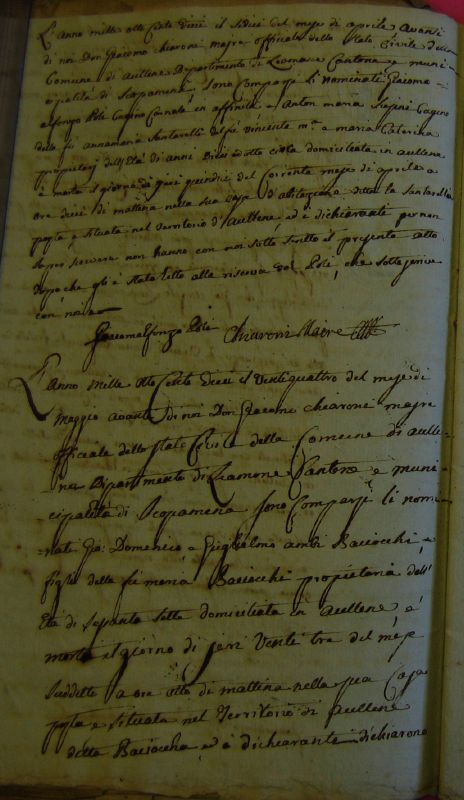 L'anno mille otto Cento dieci il sedici del mese di aprile avanti
di noi Don Giacomo chiaroni majre officiale dello Stato Civile della
Comune di aullene Dipartimento di Liamone Cantone e muni-
cipalità di Scopamena sono Comparsi li nominati Giacomo
alfonzo Poli Cugino Carnale in affinità e Anton maria Cugino
della fù annamaria Santarelli del fù vincente e maria Catarina
propietarj dell'Età di anni domiciliata in aullene
è morta il giorno di jeri quindici del Corrente mese di aprile a
ore dieci di mattina nella sua Casa d'abitazione detta la Santarella
posta e situata nel territorio d'aullene ed i dichiaranti per non
sapere scrivere non hanno con noi sotto scritto il presente atto
dopo che gli è stato letto alla riserva del Poli che sotto scrive
con noi
Giacomalfonzo Poli Chiaroni Maire
L'anno mille otto Cento dieci il Ventiquattro del mese di
Maggio avanti di noi Don Giacomo chiaroni majre
officiale dello Stato Civile della Comune di aulle-
ne Dipartimento di Liamone Cantone e muni-
cipalità di Scopamena sono Comparsi li nomi-
nati Gio: Domenico e Guglielmo ambi Baciocchi
figli della fù meria Baciocchi propietaria dell'
Età di Sepanta sette domiciliata in aullene è
morta il giorno di jeri Venti tre del mese
suddetto a ore otto di mattina nella sua Casa
posta e situata nel Territorio di aullene
detta Baciocha ed i dichiaranti dichiarono